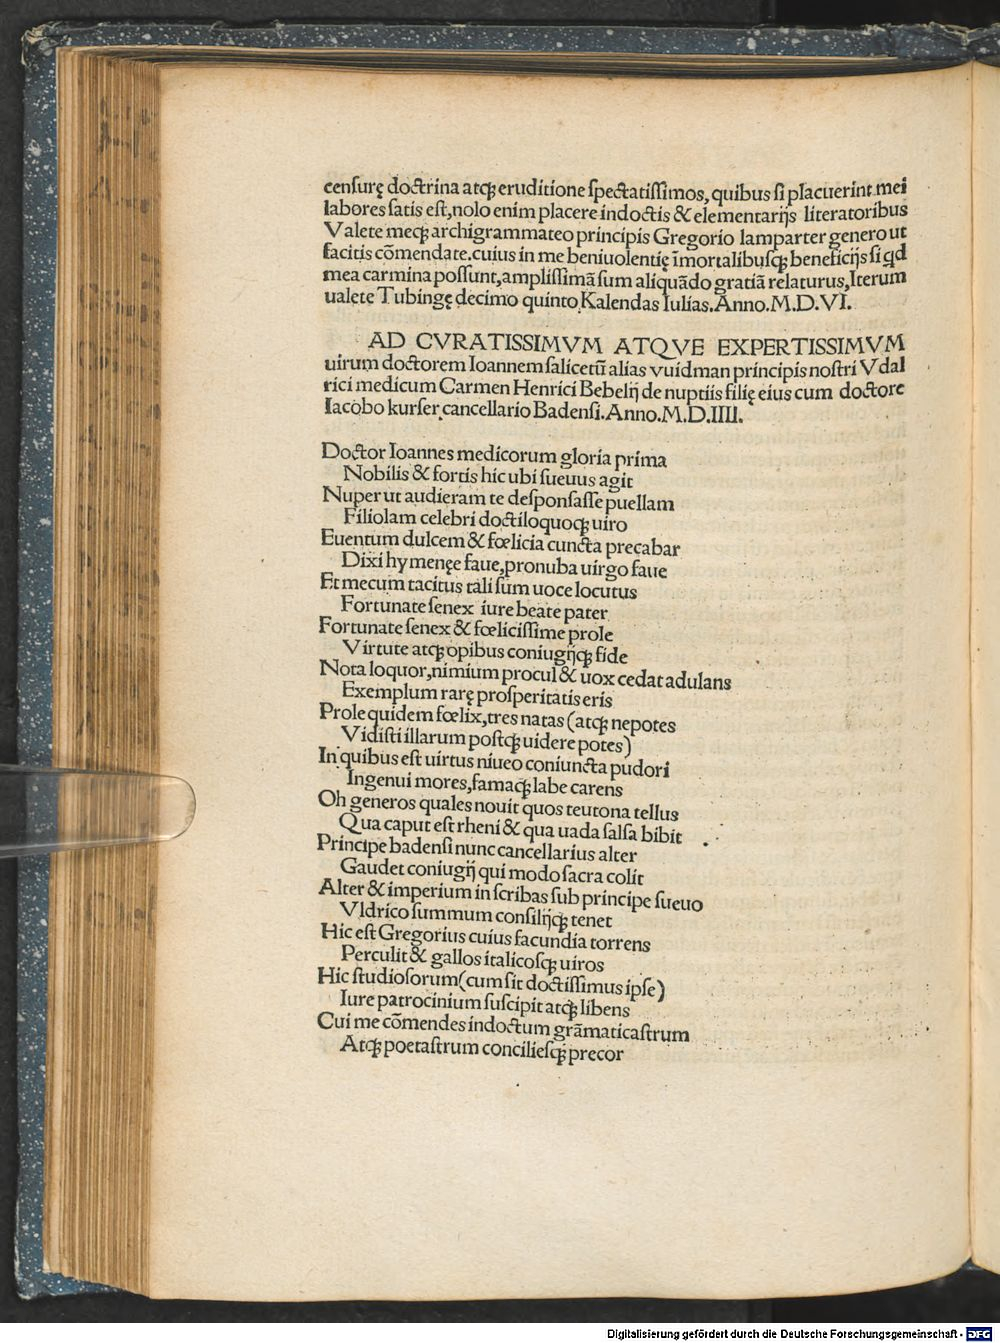 cenſurę doctrina atqꝫ eruditione ſpectatiſſimos, quibus ſi placuerint mei
labores ſatis eſt, nolo enim placere indoctis & elementarijs literatoribus
Valete meqꝫ archigrammateo principis Gregorio lamparter genero ut
facitis cōmendate. cuius in me beniuolentię īmortalibuſqꝫ beneficijs ſi qd
mea carmina poſſunt, ampliſſimā ſum aliquādo gratiā relaturus, Iterum
ualete Tubingę decimo quinto Kalendas Iulias. Anno. M.D.VI.
AD CVRATISSIMVM ATQVE EXPERTISSIMVM
uirum doctorem Ioannem ſalicetū alias vuidman principis noſtri Vdal
rici medicum Carmen Henrici Bebelij de nuptiis filię eius cum doctore
Iacobo kurſer cancellario Badenſi. Anno. M.D.IIII.
Doctor Ioannes medicorum gloria prima
Nobilis & fortis hic ubi ſueuus agit
Nuper ut audieram te deſponſaſſe puellam
Filiolam celebri doctiloquoqꝫ uiro
Euentum dulcem & fœlicia cuncta precabar
Dixi hymenęe faue, pronuba uirgo faue
Et mecum tacitus tali ſum uoce locutus
Fortunate ſenex iure beate pater
Fortunate ſenex & fœliciſſime prole
Virtute atqꝫ opibus coniugijqꝫ fide
Nota loquor, nimium procul & uox cedat adulans
Exemplum rarę proſperitatis eris
Prole quidem fœlix, tres natas (atqꝫ nepotes
Vidiſti illarum poſtqꝫ uidere potes)
In quibus eſt uirtus niueo coniuncta pudori
Ingenui mores, famaqꝫ labe carens
Oh generos quales nouit quos teutona tellus
Qua caput eſt rheni & qua uada ſalſa bibit
Principe badenſi nunc cancellarius alter
Gaudet coniugij qui modo ſacra colit
Alter & imperium in ſcribas ſub principe ſueuo
Vldrico ſummum conſilijqꝫ tenet
Hic eſt Gregorius cuius facundia torrens
Perculit & gallos italicoſqꝫ uiros
Hic ſtudioſorum (cum ſit doctiſſimus ipſe)
Iure patrocinium ſuſcipit atqꝫ libens
Cui me cōmendes indoctum grāmaticaſtrum
Atqꝫ poetaſtrum concilieſqꝫ precor
Digitalisierung gefördert durch die Deutsche Forschungsgemeinschaft - DFG